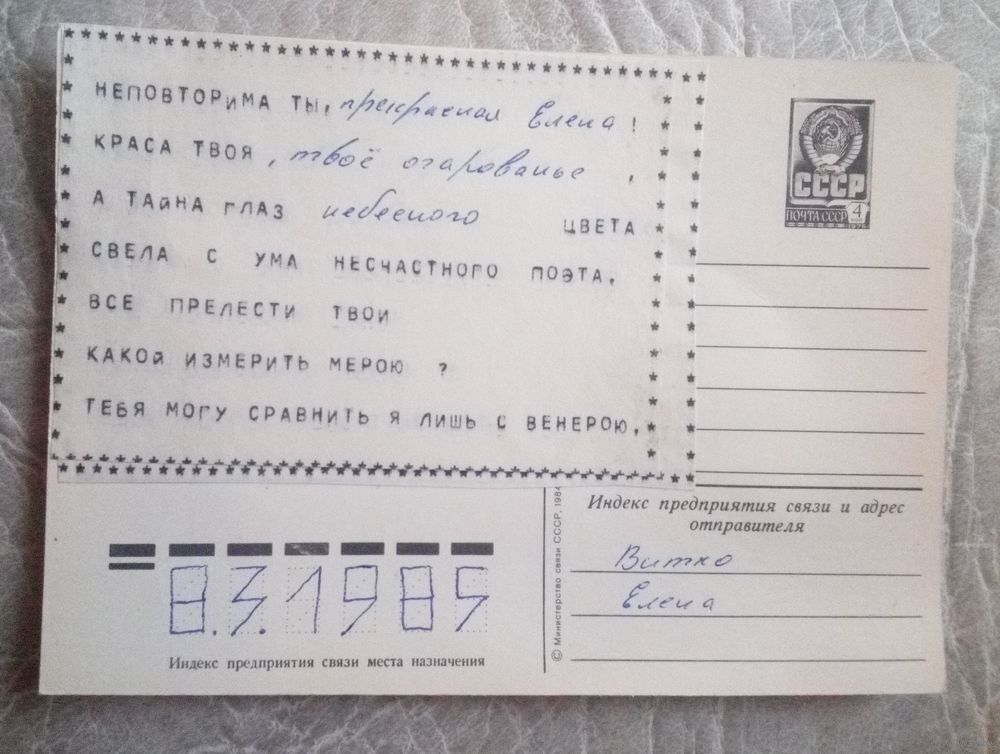 НЕПОВТОРИМА ТЫ, прекрасная Елена!
КРАСА ТВОЯ, твоё очарованье,
А ТАЙНА ГЛАЗ небесного ЦВЕТА
СВЕЛА С УМА НЕСЧАСТНОГО ПОЭТА.
ВСЕ ПРЕЛЕСТИ ТВОИ
КАКОЙ ИЗМЕРИТЬ МЕРОЮ ?
ТЕБЯ МОГУ СРАВНИТЬ Я ЛИШЬ С ВЕНЕРОЮ.
СССР
ПОЧТА СССР 4
© Министерство связи СССР, 1984
Индекс предприятия связи и адрес
отправителя
Витко
Елена
8.3.1985
Индекс предприятия связи места назначения